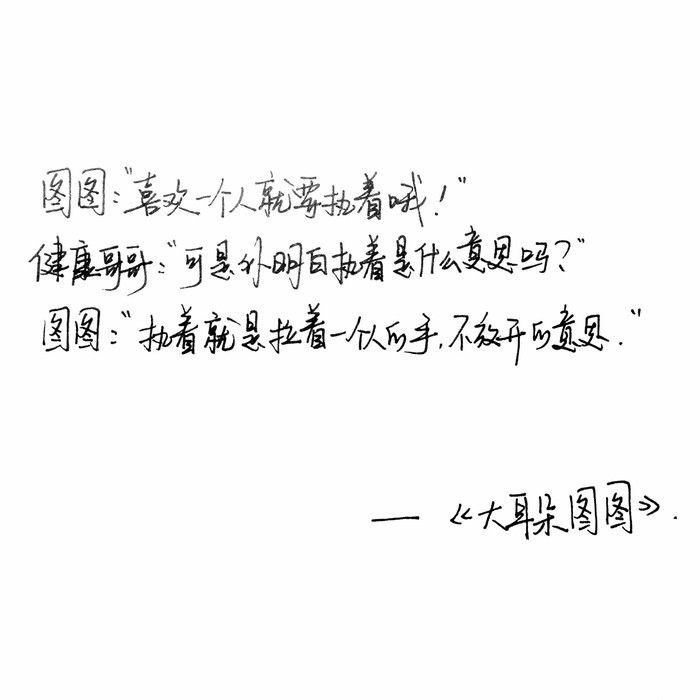 图图："喜欢一个人就要执着哦！"
健康哥哥："可是你明白执着是什么意思吗？"
图图："执着就是拉着一个人的手,不放开的意思."
——《大耳朵图图》.